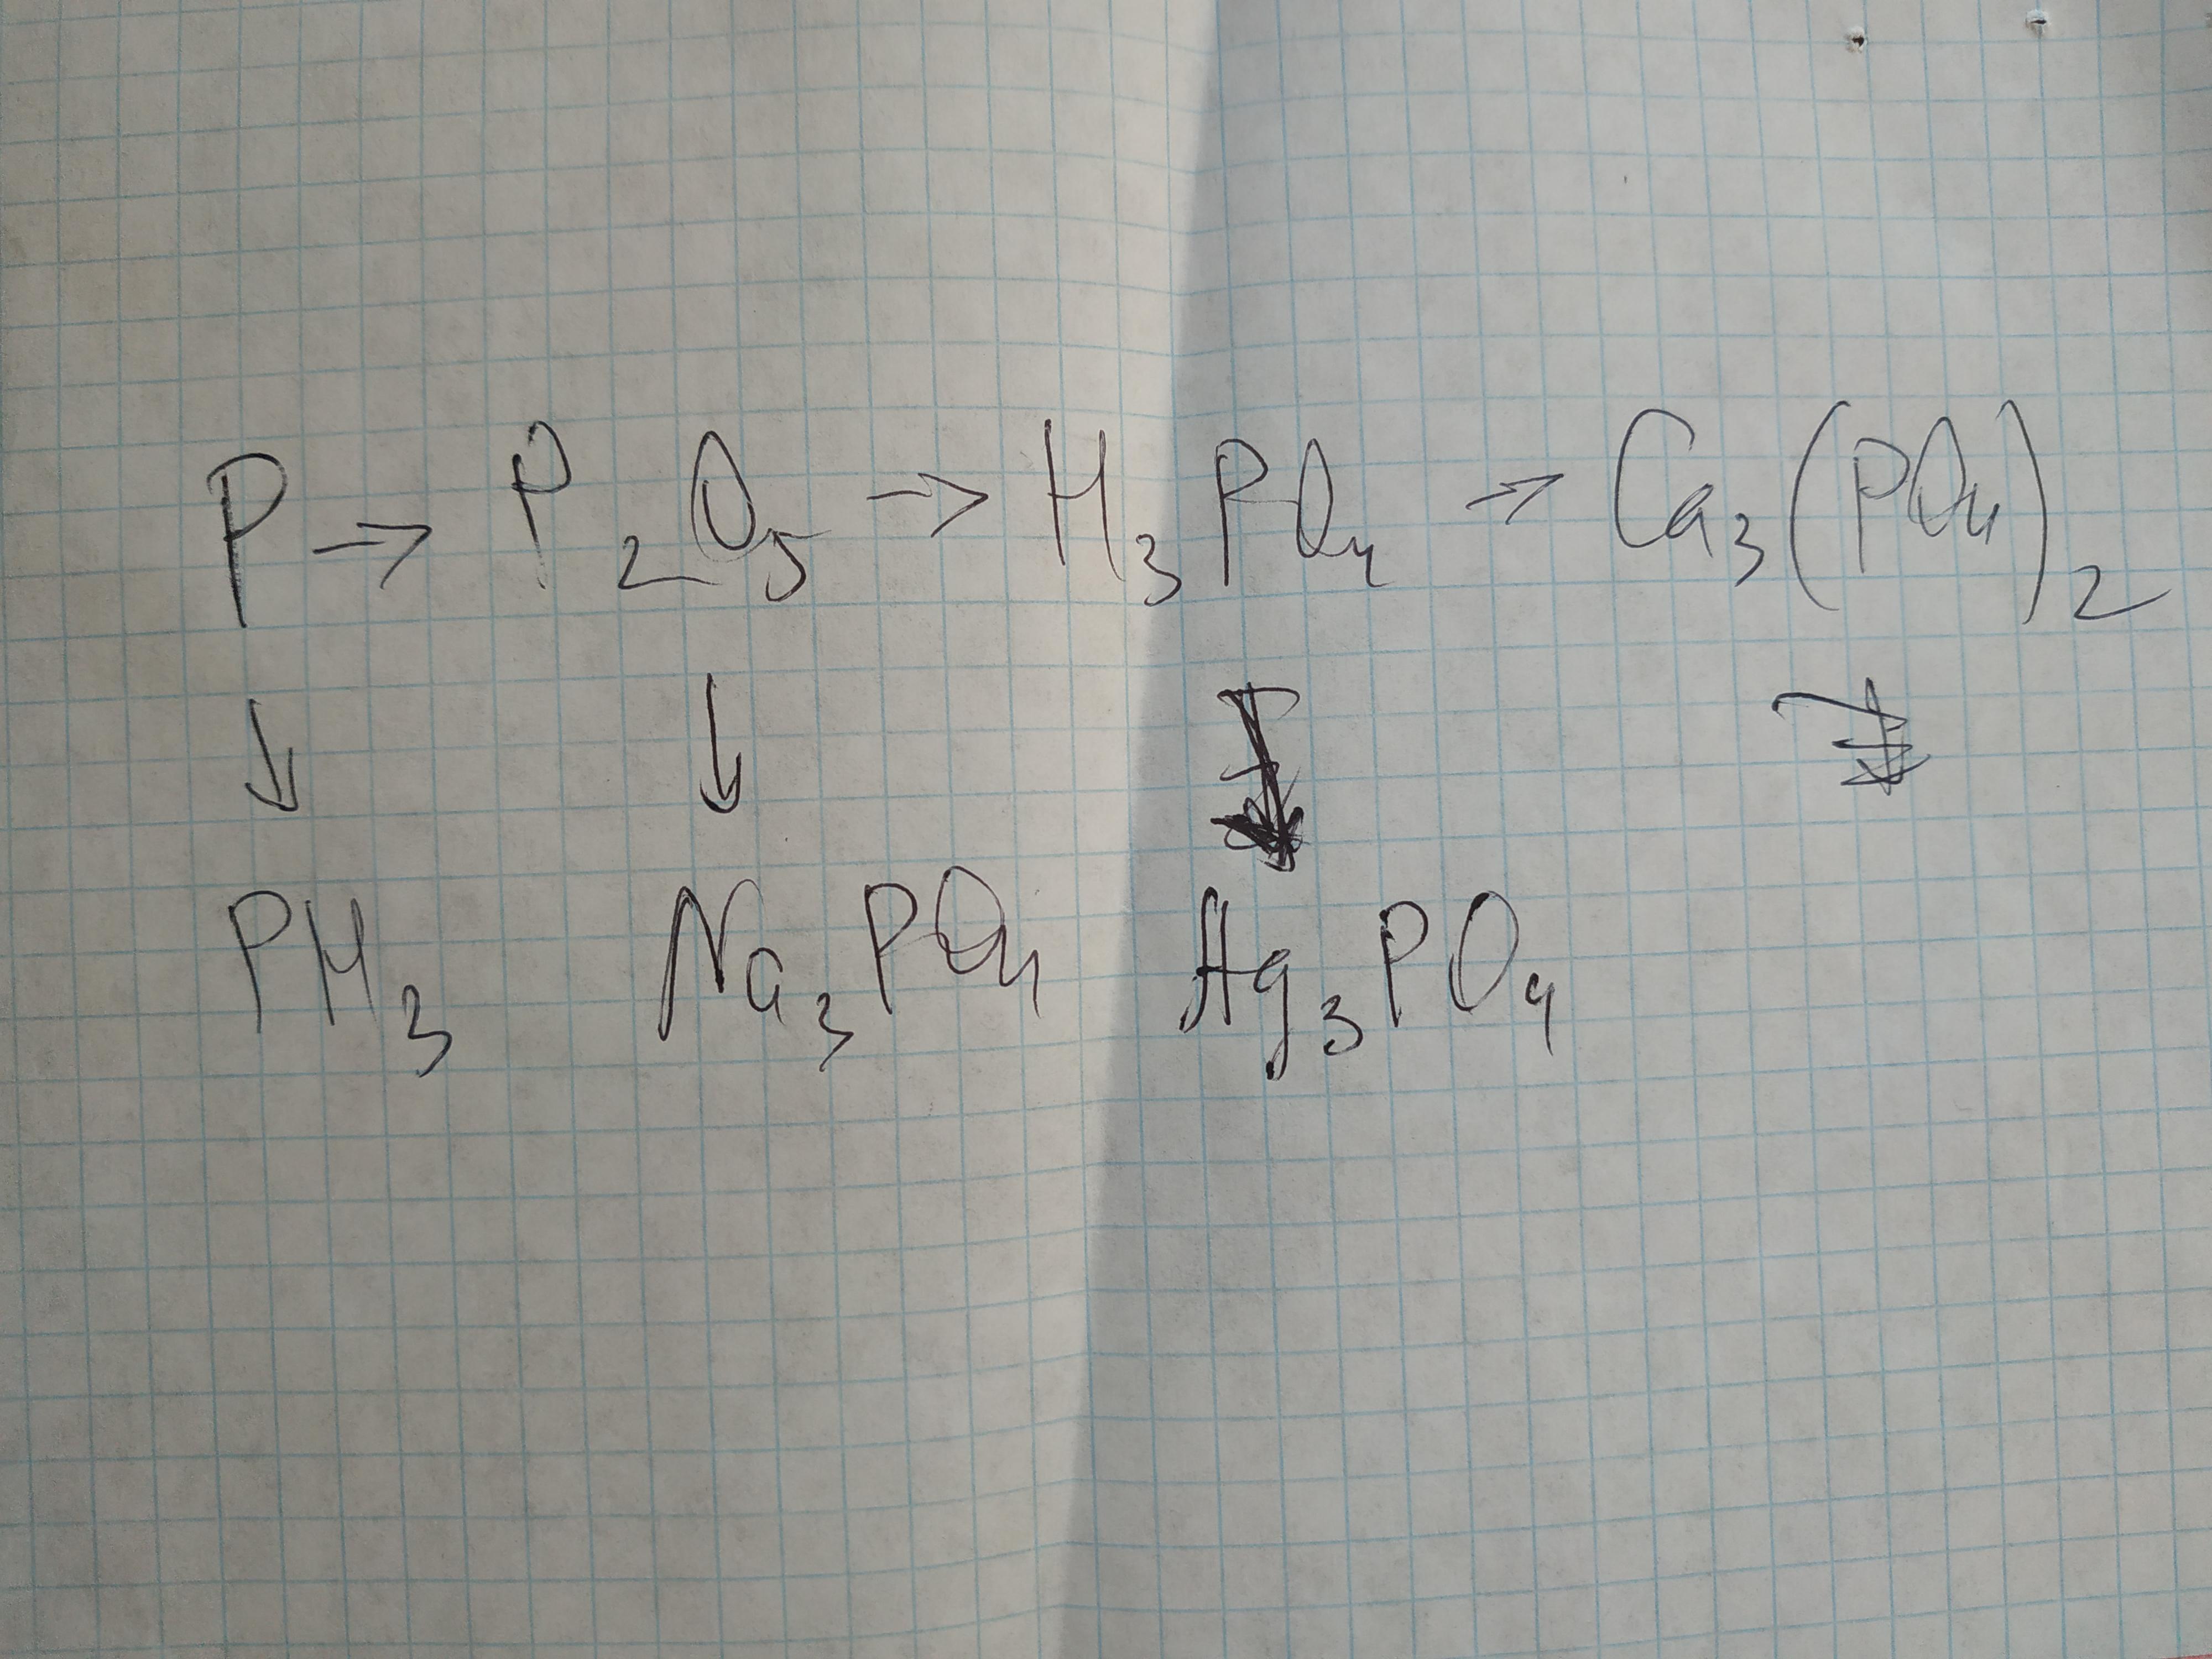 P → P₂O₅ → H₃PO₄ → Ca₃(PO₄)₂
↓ ↓ ↓
PH₃ Na₃PO₄ Ag₃PO₄